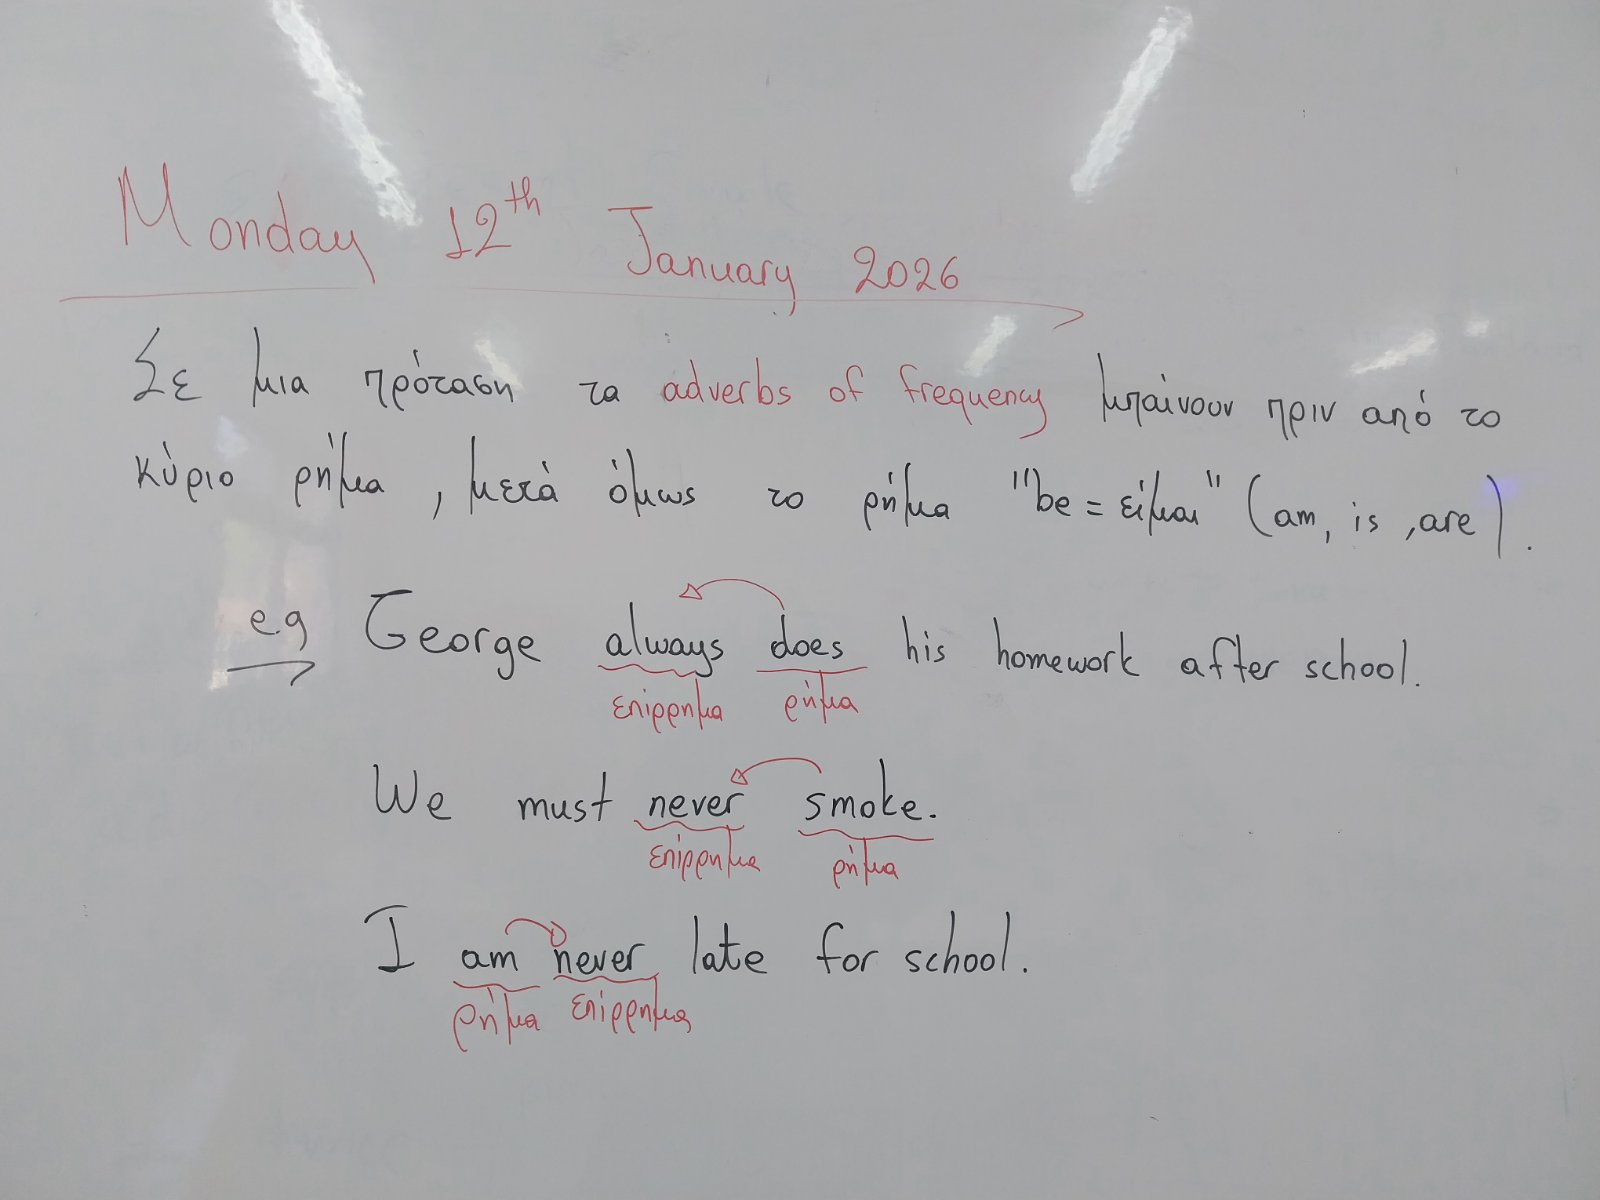 Monday 12th January 2026
Σε μια πρόταση τα adverbs of frequency μπαίνουν πριν από το
κύριο ρήμα, μετά όμως το ρήμα "be = είμαι" (am, is, are).
e.g George always does his homework after school.
επίρρημα ρήμα
We must never smoke.
επίρρημα ρήμα
I am never late for school.
ρήμα επίρρημα